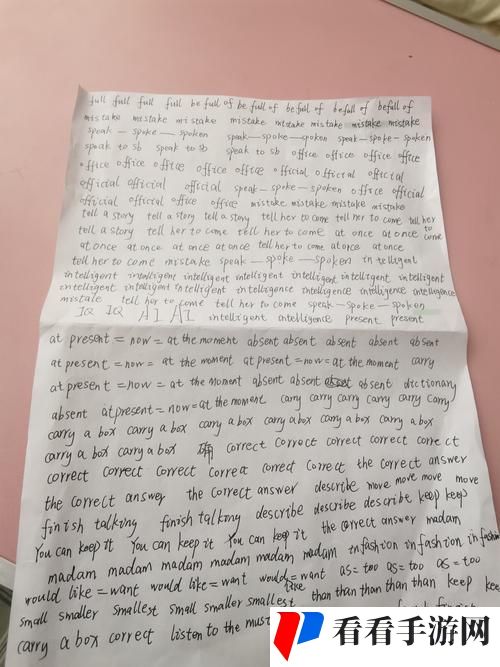 full full full full be full of be full of be full of be full of be full of
mistake mistake mistake mistake mistake mistake mistake
speak — spoke — spoken speak—spoke—spoken speak—spoke—spoken
speak to sb speak to sb speak to sb office office office office
office office office office office office official official official
official official official speak—spoke—spoken office official
official official office office mistake mistake mistake mistake
tell a story tell a story tell a story tell her to come tell her to come tell her
tell a story tell her to come tell her to come at once at once to come
at once at once at once at once tell her to come at once at once
tell her to come mistake speak—spoke—spoken intelligent
intelligent intelligent intelligent intelligent intelligent intelligent intelligent
intelligent intelligent intelligent intelligence intelligence intelligence intelligence
mistake tell her to come tell her to come speak—spoke—spoken
IQ IQ AI AI intelligent intelligence present present
at present = now = at the moment absent absent absent absent absent
at present = now = at the moment at present = now = at the moment carry
at present = now = at the moment absent absent absent dictionary
absent at present = now = at the moment carry carry carry carry carry carry
carry a box carry a box carry a box carry a box carry a box carry a box
carry a box carry a box 确 correct correct correct correct correct
correct correct correct correct correct correct the correct answer
the correct answer the correct answer describe move move move move
finish talking finish talking describe describe describe keep keep
You can keep it You can keep it You can keep it the correct answer madam
madam madam madam madam madam madam in fashion in fashion in fashion
would like = want would like = want would like = want as = too as = too as = too
small smaller smallest small smaller smallest than than than than than keep
carry a box correct listen to the
看看手游网